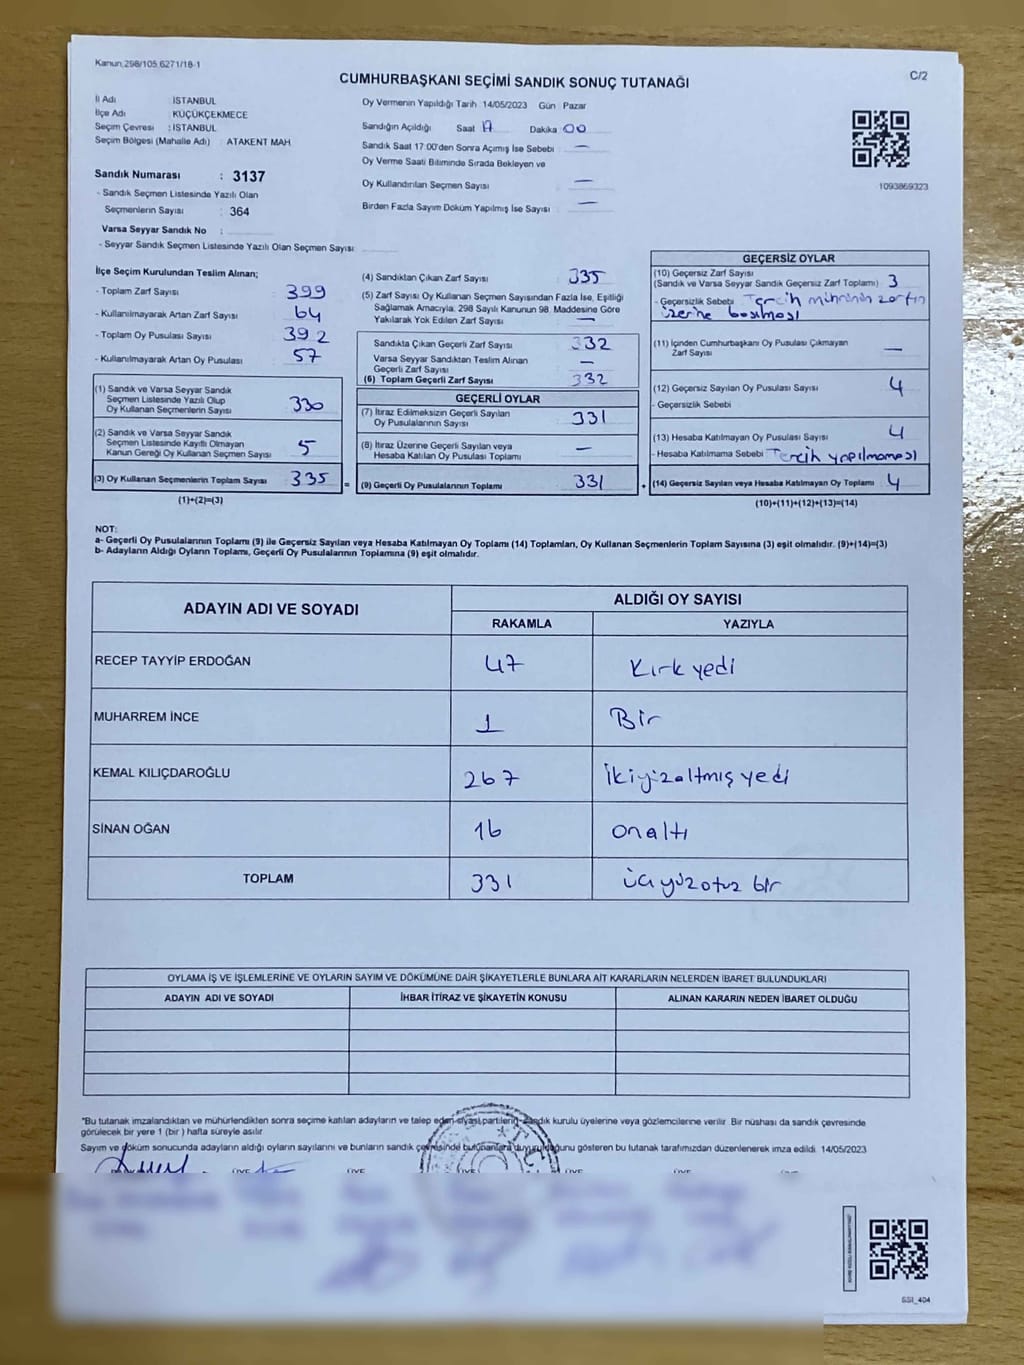 Kanun 298/105 6271/18-1
C/2
CUMHURBAŞKANI SEÇİMİ SANDIK SONUÇ TUTANAĞI
İl Adı : İSTANBUL
İlçe Adı : KÜÇÜKÇEKMECE
Seçim Çevresi : İSTANBUL
Seçim Bölgesi (Mahalle Adı) : ATAKENT MAH
Sandık Numarası : 3137
- Sandık Seçmen Listesinde Yazılı Olan
Seçmenlerin Sayısı : 364
Varsa Seyyar Sandık No :
- Seyyar Sandık Seçmen Listesinde Yazılı Olan Seçmen Sayısı
Oy Vermenin Yapıldığı Tarih 14/05/2023 Gün : Pazar
Sandığın Açıldığı Saat 17 Dakika 00
Sandık Saat 17:00'den Sonra Açımış İse Sebebi —
Oy Verme Saati Bitiminde Sırada Bekleyen ve
Oy Kullandırılan Seçmen Sayısı —
Birden Fazla Sayım Döküm Yapılmış İse Sayısı —
1093869323
İlçe Seçim Kurulundan Teslim Alınan;
- Toplam Zarf Sayısı : 399
- Kullanılmayarak Artan Zarf Sayısı : 64
- Toplam Oy Pusulası Sayısı : 392
- Kullanılmayarak Artan Oy Pusulası : 57
(1) Sandık ve Varsa Seyyar Sandık
Seçmen Listesinde Yazılı Olup
Oy Kullanan Seçmenlerin Sayısı : 330
(2) Sandık ve Varsa Seyyar Sandık
Seçmen Listesinde Kayıtlı Olmayan
Kanun Gereği Oy Kullanan Seçmen Sayısı : 5
(3) Oy Kullanan Seçmenlerin Toplam Sayısı : 335
(1)+(2)=(3)
(4) Sandıktan Çıkan Zarf Sayısı : 335
(5) Zarf Sayısı Oy Kullanan Seçmen Sayısından Fazla İse, Eşitliği
Sağlamak Amacıyla, 298 Sayılı Kanunun 98. Maddesine Göre
Yakılarak Yok Edilen Zarf Sayısı : —
Sandıkta Çıkan Geçerli Zarf Sayısı : 332
Varsa Seyyar Sandıktan Teslim Alınan
Geçerli Zarf Sayısı : —
(6) Toplam Geçerli Zarf Sayısı : 332
GEÇERLİ OYLAR
(7) İtiraz Edilmeksizin Geçerli Sayılan
Oy Pusulalarının Sayısı : 331
(8) İtiraz Üzerine Geçerli Sayılan veya
Hesaba Katılan Oy Pusulası Toplamı : —
= (9) Geçerli Oy Pusulalarının Toplamı : 331 +
GEÇERSİZ OYLAR
(10) Geçersiz Zarf Sayısı
(Sandık ve Varsa Seyyar Sandık Geçersiz Zarf Toplamı) : 3
- Geçersizlik Sebebi : Tercih mührünün zarfın
üzerine basılması
(11) İçinden Cumhurbaşkanı Oy Pusulası Çıkmayan
Zarf Sayısı : —
(12) Geçersiz Sayılan Oy Pusulası Sayısı : 4
- Geçersizlik Sebebi
(13) Hesaba Katılmayan Oy Pusulası Sayısı : 4
- Hesaba Katılmama Sebebi : Tercih yapılmaması
(14) Geçersiz Sayılan veya Hesaba Katılmayan Oy Toplamı : 4
(10)+(11)+(12)+(13)=(14)
NOT:
a- Geçerli Oy Pusulalarının Toplamı (9) ile Geçersiz Sayılan veya Hesaba Katılmayan Oy Toplamı (14) Toplamları, Oy Kullanan Seçmenlerin Toplam Sayısına (3) eşit olmalıdır. (9)+(14)=(3)
b- Adayların Aldığı Oyların Toplamı, Geçerli Oy Pusulalarının Toplamına (9) eşit olmalıdır.
ADAYIN ADI VE SOYADI
ALDIĞI OY SAYISI
RAKAMLA YAZIYLA
RECEP TAYYİP ERDOĞAN 47 Kırk yedi
MUHARREM İNCE 1 Bir
KEMAL KILIÇDAROĞLU 267 İkiyüzaltmış yedi
SİNAN OĞAN 16 onaltı
TOPLAM 331 üçyüzotuz bir
OYLAMA İŞ VE İŞLEMLERİNE VE OYLARIN SAYIM VE DÖKÜMÜNE DAİR ŞİKAYETLERLE BUNLARA AİT KARARLARIN NELERDEN İBARET BULUNDUKLARI
ADAYIN ADI VE SOYADI İHBAR İTİRAZ VE ŞİKAYETİN KONUSU ALINAN KARARIN NEDEN İBARET OLDUĞU
*Bu tutanak imzalandıktan ve mühürlendikten sonra seçime katılan adayların ve talep eden siyasi partilerin, sandık kurulu üyelerine veya gözlemcilerine verilir. Bir nüshası da sandık çevresinde
görülecek bir yere 1 (bir ) hafta süreyle asılır.
Sayım ve döküm sonucunda adayların aldığı oyların sayılarını ve bunların sandık çevresinde bulunanlara duyurulduğunu gösteren bu tutanak tarafımızdan düzenlenerek imza edildi. 14/05/2023
SSI_404